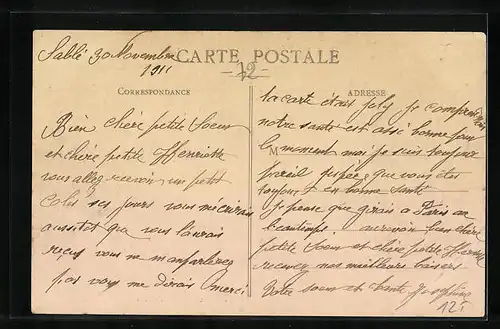 Sablé 30 Novembre
1911
CARTE POSTALE
72
CORRESPONDANCE
ADRESSE
Bien chere petite Soeur
et chère petite Henriette
vous allez recevoir un petit
Colis ses jours vous m'écrirais
aussitot que vous l'aurais
recus vous me
pas vous me dirais merci
la carte étais joly je
notre santé est assé bonne pour
M
le moment moi je suis toujours
pareil j'espère que vous êtes
toujours en bonne santé
je pense que girais a Paris au
beautemps. aurevoir bien chère
petite Soeur et chère petite Henriette
recevez nos meilleurs baisers
Votre soeur et tante Josephine
125